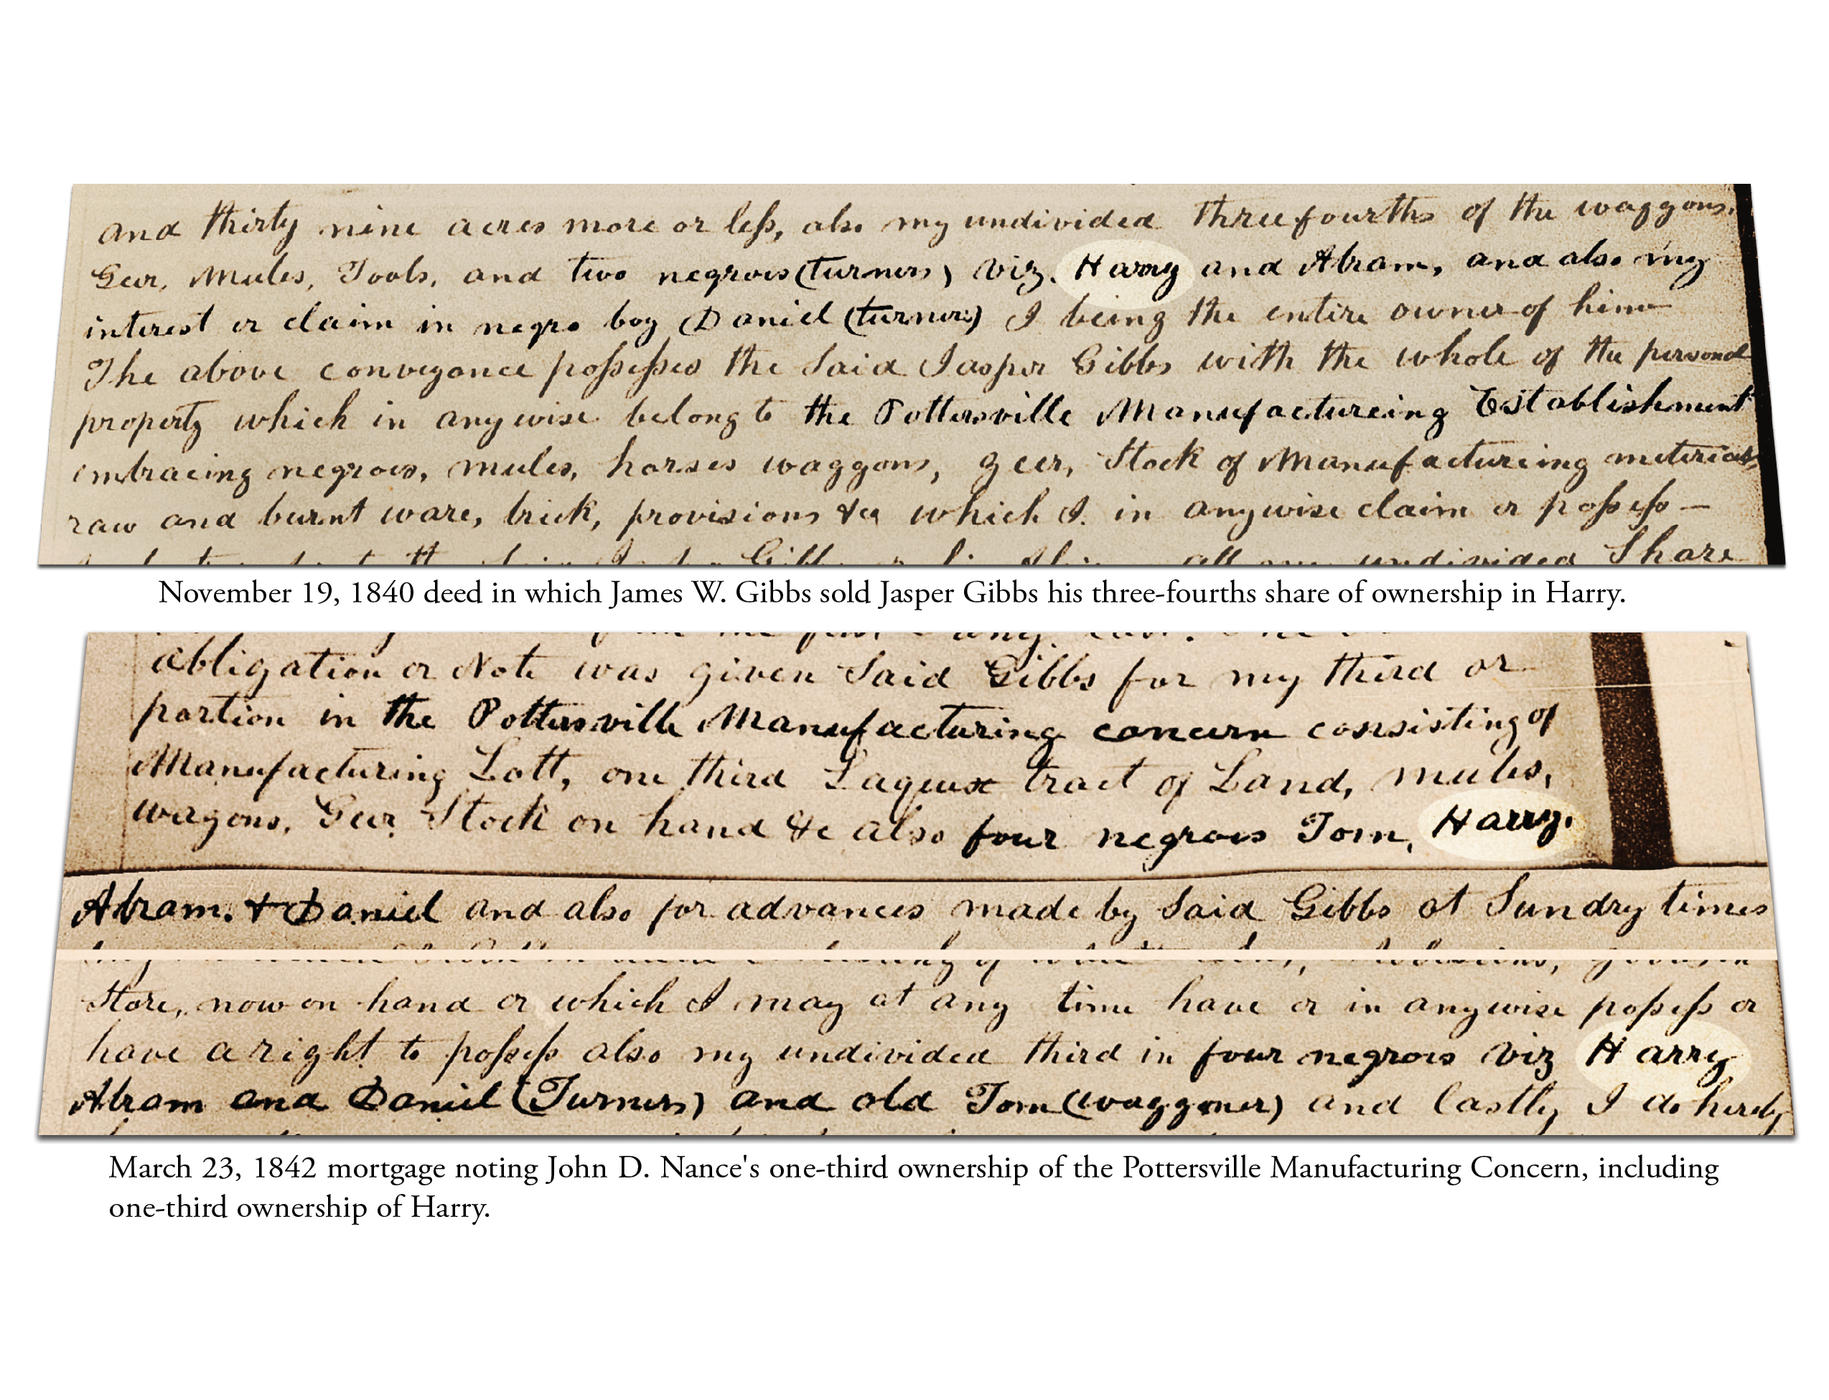 and thirty nine acres more or less, also my undivided three fourths of the waggons,
Geer, Mules, Tools, and two negroes (turners) viz. Harry and Abram, and also my
interest or claim in negro boy Daniel (turner) I being the entire owner of him
The above conveyance possesses the Said Jasper Gibbs with the whole of the personal
property which in anywise belong to the Pottersville Manufactureing Establishment
embracing negroes, mules, horses waggons, geer, Stock of Manufactureing meterials,
raw and burnt ware, brick, provisions &c which I in anywise claim or possess —
Gibbs all my undivided Share
November 19, 1840 deed in which James W. Gibbs sold Jasper Gibbs his three-fourths share of ownership in Harry.
obligation or Note was given Said Gibbs for my third or
portion in the Pottersville Manufacturing concern consisting of
Manufacturing Lott, one third tract of Land, mules,
wagons, Geer Stock on hand &c also four negroes Tom, Harry.
Abram. & Daniel and also for advances made by Said Gibbs at Sundry times
Store, now on hand or which I may at any time have or in anywise possess or
have a right to possess also my undivided third in four negroes viz Harry
Abram and Daniel (Turners) and old Tom (waggoner) and lastly I do hereby
March 23, 1842 mortgage noting John D. Nance's one-third ownership of the Pottersville Manufacturing Concern, including
one-third ownership of Harry.